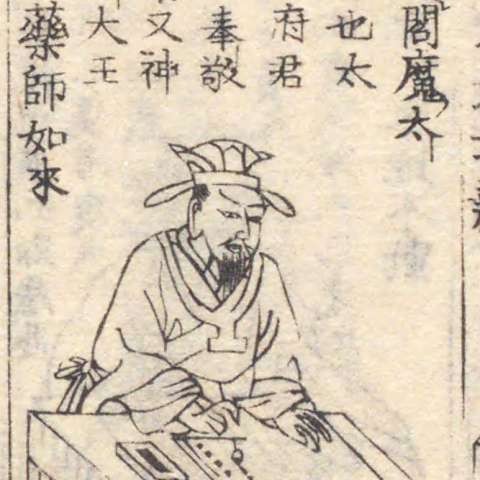 閻魔太
也太
府君
奉敬
又神
大王
藥師如來